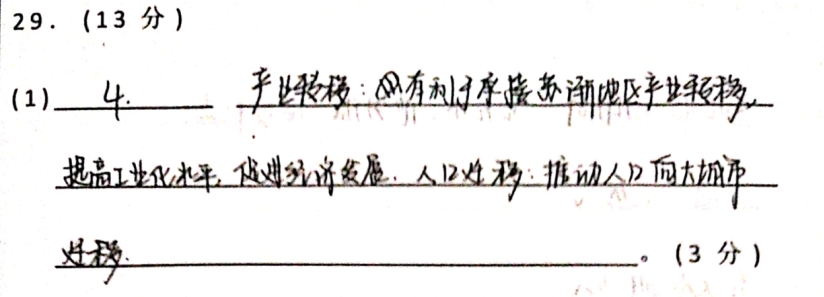 29. (13 分)
(1) 4. 产业转移:有利于承接苏浙地区产业转移,
提高工业化水平,促进经济发展. 人口迁移:推动人口向大城市
迁移. 。(3 分)